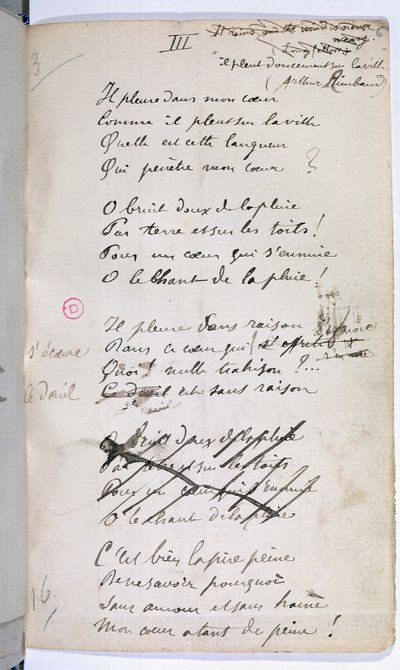 III
It rains, and the wind is never
weary
(Longfellow)
6
"il pleut doucement sur la ville"
(Arthur Rimbaud)
3
Il pleure dans mon cœur
Comme il pleut sur la ville
Quelle est cette langueur
Qui pénètre mon cœur ?
O bruit doux de la pluie
Par terre et sur les toits !
Pour un cœur qui s'ennuie
O le Chant de la pluie !
D
Il pleure sans raison
Dans ce cœur qui
s'écœure
Quoi ! nulle trahison ?...
le deuil
Ce deuil est sans raison
O bruit doux de la pluie
Par terre et sur les toits
Pour un cœur qui s'ennuie
O le chant de la pluie
C'est bien la pire peine
De ne savoir pourquoi
Sans amour et sans haine
16
Mon cœur a tant de peine !